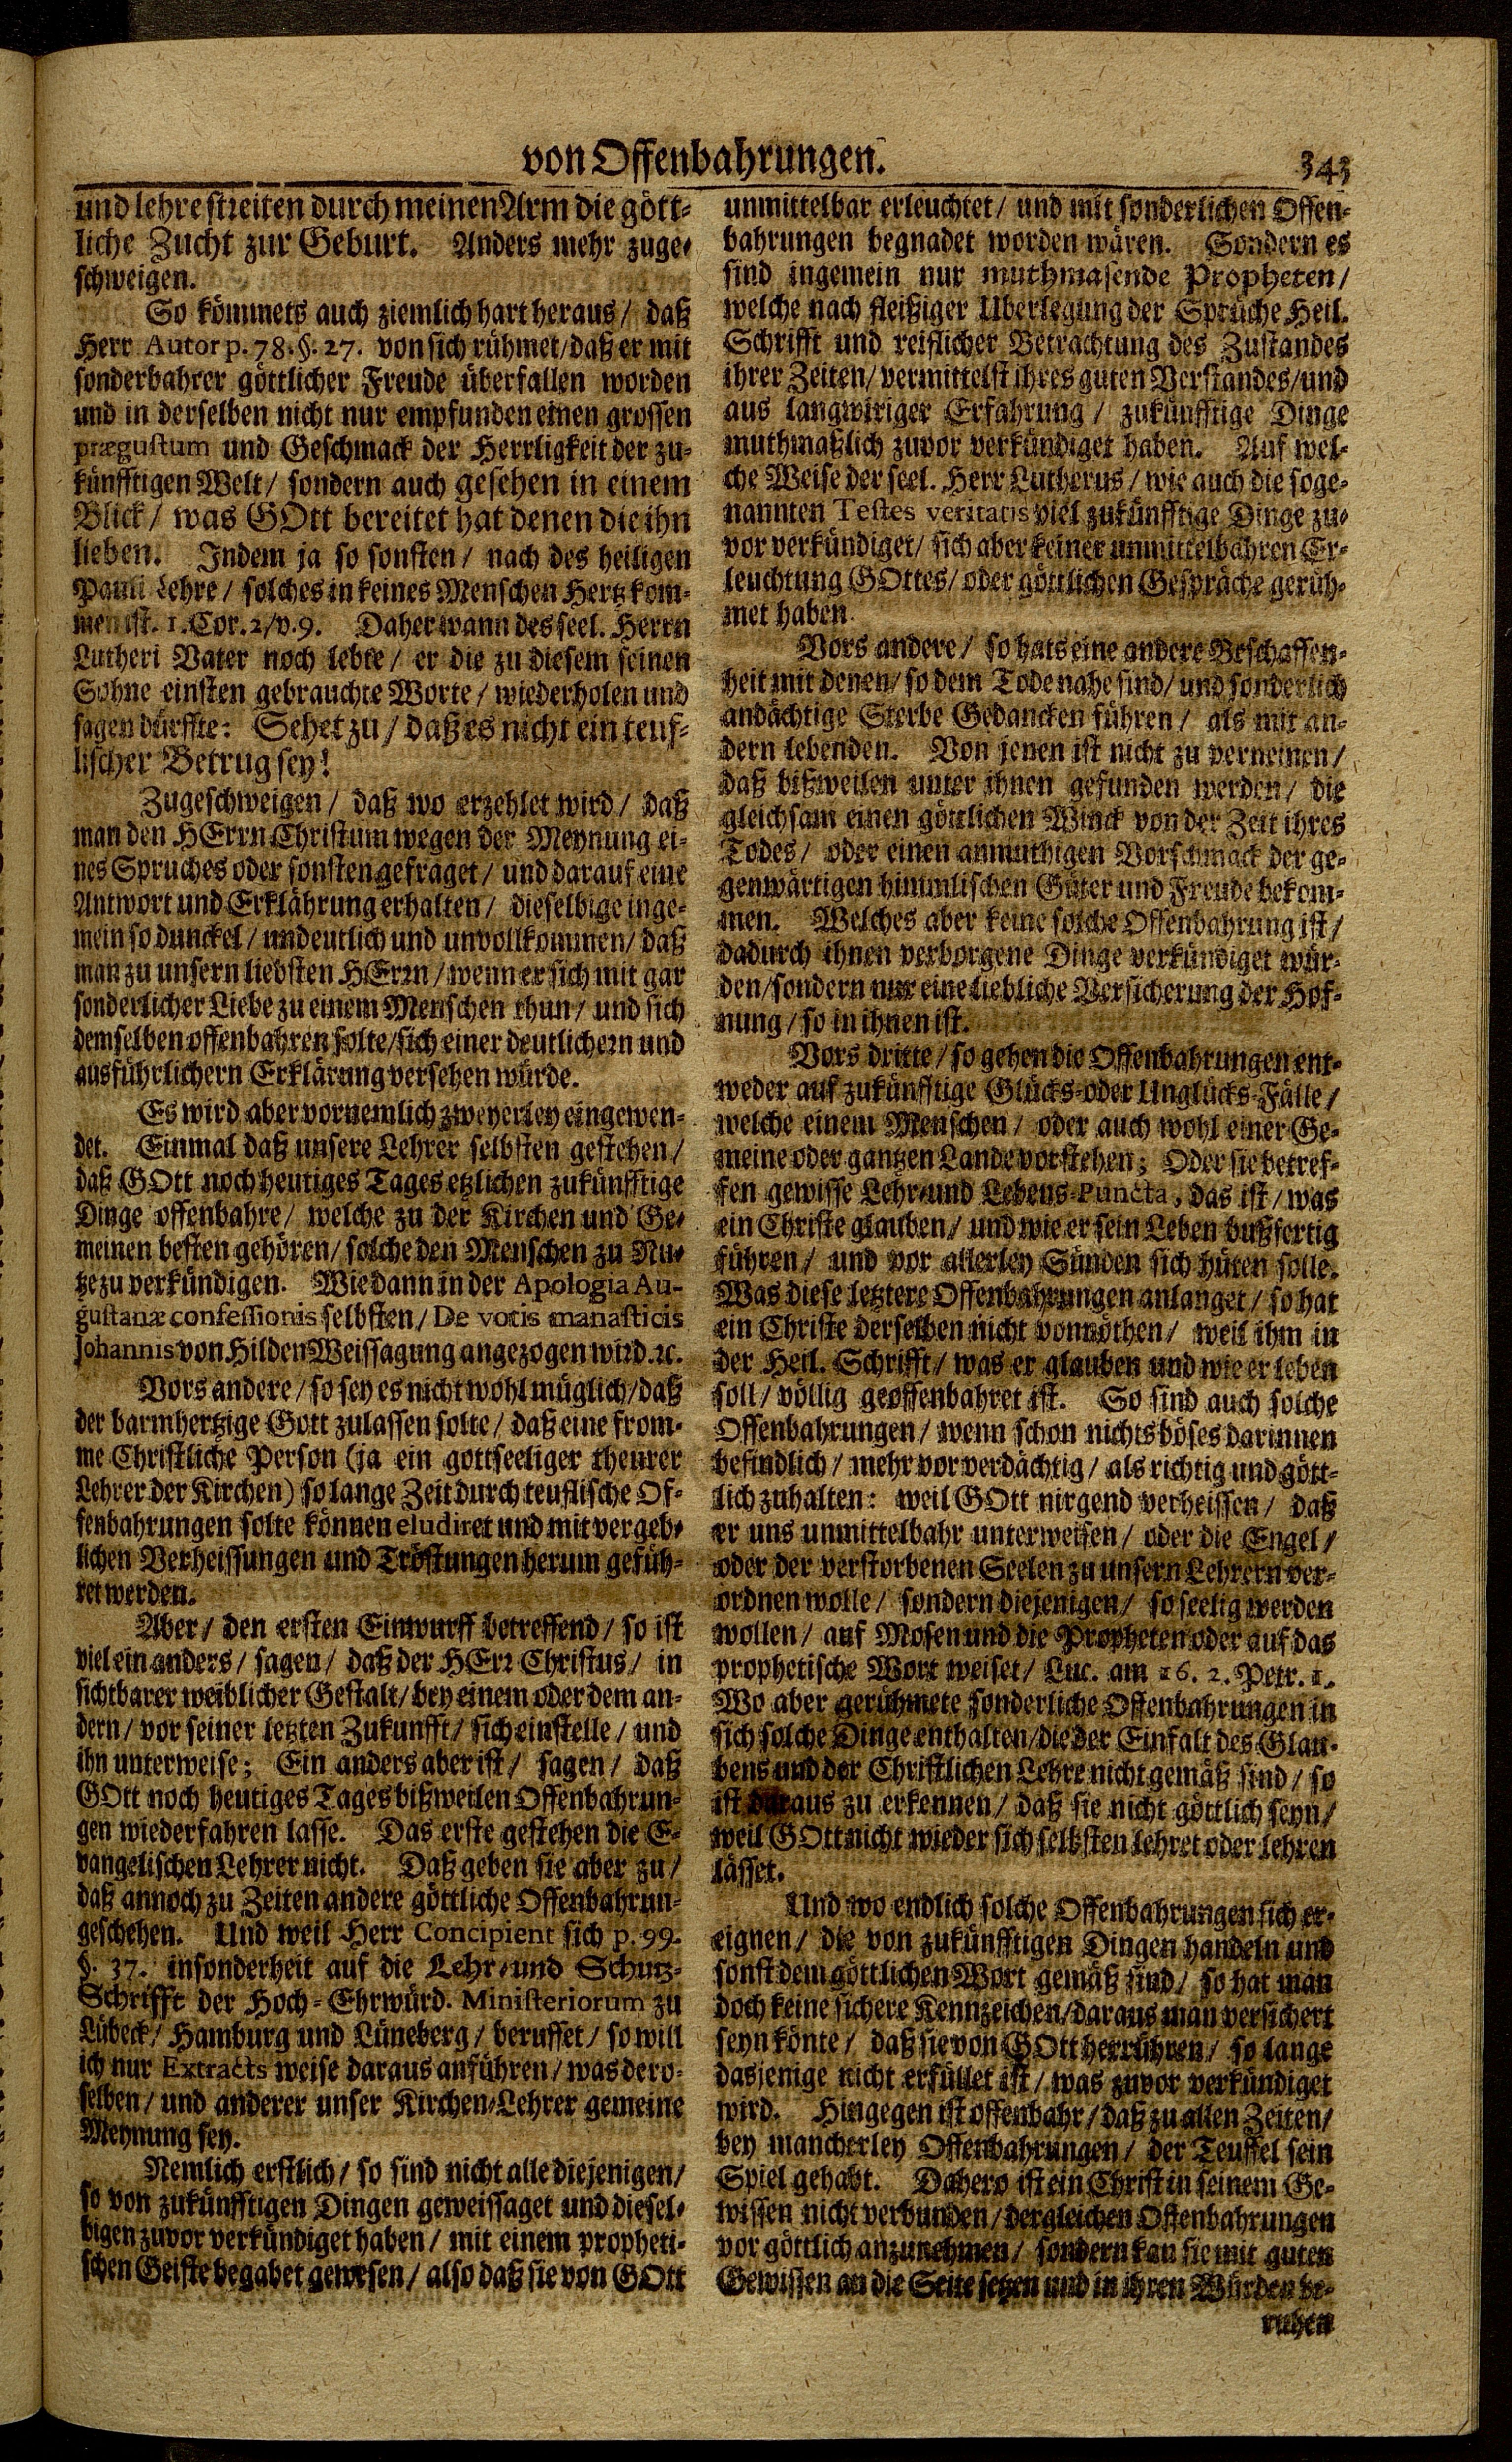 von Offenbahrungen.
343
und lehre streiten durch meinen Arm die gött-
liche Zucht zur Geburt. Anders mehr zuge-
schweigen.
So kömmets auch ziemlich hart heraus / daß
Herr Autor p. 78. §. 27. von sich rühmet / daß er mit
sonderbahrer göttlicher Freude überfallen worden
und in derselben nicht nur empfunden einen grossen
prægustum und Geschmack der Herrligkeit der zu-
künfftigen Welt / sondern auch gesehen in einem
Blick / was GOtt bereitet hat denen die ihn
lieben. Indem ja so sonsten / nach des heiligen
Pauli Lehre / solches in keines Menschen Hertz kom-
men ist. 1. Cor. 2 / v. 9. Daher wann des seel. Herrn
Lutheri Vater noch lebte / er die zu diesem seinen
Sohne einsten gebrauchte Worte / wiederholen und
sagen dürffte: Sehet zu / daß es nicht ein teuf-
lischer Betrug sey!
Zugeschweigen / daß wo erzehlet wird / daß
man den HErrn Christum wegen der Meynung ei-
nes Spruches oder sonsten gefraget / und darauf eine
Antwort und Erklährung erhalten / dieselbige inge-
mein so dunckel / undeutlich und unvollkommen / daß
man zu unsern liebsten HErrn / wenn er sich mit gar
sonderlicher Liebe zu einem Menschen thun / und sich
demselben offenbahren solte / sich einer deutlichern und
ausführlichern Erklärung versehen würde.
Es wird aber vornemlich zweyerley eingewen-
det. Einmal daß unsere Lehrer selbsten gestehen /
daß GOtt noch heutiges Tages etzlichen zukünfftige
Dinge offenbahre / welche zu der Kirchen und Ge-
meinen besten gehören / solche den Menschen zu Nu-
tze zu verkündigen. Wie dann in der Apologia Au-
gustanæ confessionis selbsten / De votis manasticis
Johannis von Hilden Weissagung angezogen wird. ꝛc.
Vors andere / so sey es nicht wohl müglich / daß
der barmhertzige Gott zulassen solte / daß eine from-
me Christliche Person (ja ein gottseeliger theurer
Lehrer der Kirchen) so lange Zeit durch teuflische Of-
fenbahrungen solte können eludiret und mit vergeb-
lichen Verheissungen und Tröstungen herum gefüh-
ret werden.
Aber / den ersten Einwurff betreffend / so ist
viel ein anders / sagen / daß der HErr Christus / in
sichtbarer weiblicher Gestalt / bey einem oder dem an-
dern / vor seiner letzten Zukunfft / sich einstelle / und
ihn unterweise; Ein anders aber ist / sagen / daß
GOtt noch heutiges Tages bißweilen Offenbahrun-
gen wiederfahren lasse. Das erste gestehen die E-
vangelischen Lehrer nicht. Daß geben sie aber zu /
daß annoch zu Zeiten andere göttliche Offenbahrun-
geschehen. Und weil Herr Concipient sich p. 99.
§. 37. insonderheit auf die Lehr- und Schutz-
Schrifft der Hoch-Ehrwürd. Ministeriorum zu
Lübeck / Hamburg und Lüneberg / beruffet / so will
ich nur Extracts weise daraus anführen / was dero-
selben / und anderer unser Kirchen-Lehrer gemeine
Meynung sey.
Nemlich erstlich / so sind nicht alle diejenigen /
so von zukünfftigen Dingen geweissaget und diesel-
bigen zuvor verkündiget haben / mit einem propheti-
schen Geiste begabet gewesen / also daß sie von GOtt
unmittelbar erleuchtet / und mit sonderlichen Offen-
bahrungen begnadet worden wären. Sondern es
sind ingemein nur muthmasende Propheten /
welche nach fleißiger Uberlegung der Sprüche Heil.
Schrifft und reiflicher Betrachtung des Zustandes
ihrer Zeiten / vermittelst ihres guten Verstandes / und
aus langwiriger Erfahrung / zukünfftige Dinge
muthmaßlich zuvor verkündiget haben. Auf wel-
che Weise der seel. Herr Lutherus / wie auch die soge-
nannten Testes veritatis viel zukünfftige Dinge zu-
vor verkündiget / sich aber keiner unmittelbahren Er-
leuchtung GOttes / oder göttlichen Gespräche gerüh-
met haben.
Vors andere / so hats eine andere Beschaffen-
heit mit denen / so dem Tode nahe sind / und sonderlich
andächtige Sterbe Gedancken führen / als mit an-
dern lebenden. Von jenen ist nicht zu verneinen /
daß bißweilen unter ihnen gefunden werden / die
gleichsam einen göttlichen Winck von der Zeit ihres
Todes / oder einen anmuthigen Vorschmack der ge-
genwärtigen himmlischen Güter und Freude bekom-
men. Welches aber keine solche Offenbahrung ist /
dadurch ihnen verborgene Dinge verkündiget wür-
den / sondern nur eine liebliche Versicherung der Hof-
nung / so in ihnen ist.
Vors dritte / so gehen die Offenbahrungen ent-
weder auf zukünfftige Glücks- oder Unglücks-Fälle /
welche einem Menschen / oder auch wohl einer Ge-
meine oder gantzen Lande vorstehen; Oder sie betref-
fen gewisse Lehr- und Lebens-Puncta, das ist / was
ein Christe glauben / und wie er sein Leben bußfertig
führen / und vor allerley Sünden sich hüten solle.
Was diese letztere Offenbahrungen anlanget / so hat
ein Christe derselben nicht vonnöthen / weil ihm in
der Heil. Schrifft / was er glauben und wie er leben
soll / völlig geoffenbahret ist. So sind auch solche
Offenbahrungen / wenn schon nichts böses darinnen
befindlich / mehr vor verdächtig / als richtig und gött-
lich zuhalten: weil GOtt nirgend verheissen / daß
er uns unmittelbahr unterweisen / oder die Engel /
oder der verstorbenen Seelen zu unsern Lehrern ver-
ordnen wolle / sondern diejenigen / so seelig werden
wollen / auf Mosen und die Propheten oder auf das
prophetische Wort weiset / Luc. am 16. 2. Petr. 1.
Wo aber gerühmete sonderliche Offenbahrungen in
sich solche Dinge enthalten / die der Einfalt des Glau-
bens und der Christlichen Lehre nicht gemäß sind / so
ist daraus zu erkennen / daß sie nicht göttlich seyn /
weil GOtt nicht wieder sich selbsten lehret oder lehren
lässet.
Und wo endlich solche Offenbahrungen sich er-
eignen / die von zukünfftigen Dingen handeln und
sonst dem göttlichen Wort gemäß sind / so hat man
doch keine sichere Kennzeichen / daraus man versichert
seyn könte / daß sie von GOtt herrühren / so lange
dasjenige nicht erfüllet ist / was zuvor verkündiget
wird. Hingegen ist offenbahr / daß zu allen Zeiten /
bey mancherley Offenbahrungen / der Teuffel sein
Spiel gehabt. Dahero ist ein Christ in seinem Ge-
wissen nicht verbunden / dergleichen Offenbahrungen
vor göttlich anzunehmen / sondern kan sie mit guten
Gewissen an die Seite setzen und in ihren Würden be-
ruhen